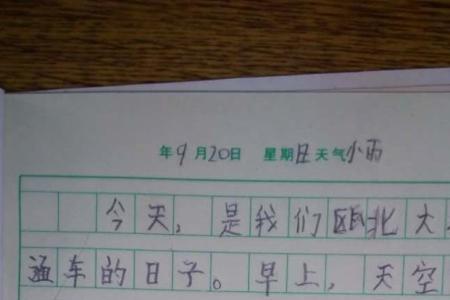 年9月20日 星期日天气小雨
今天,是我们瓯北大
通车的日子。早上,天空